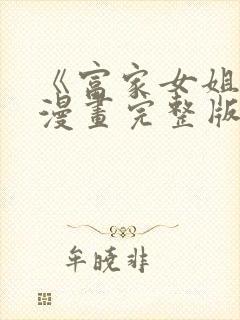 《富家女姐
漫畫完整版
牟曉非